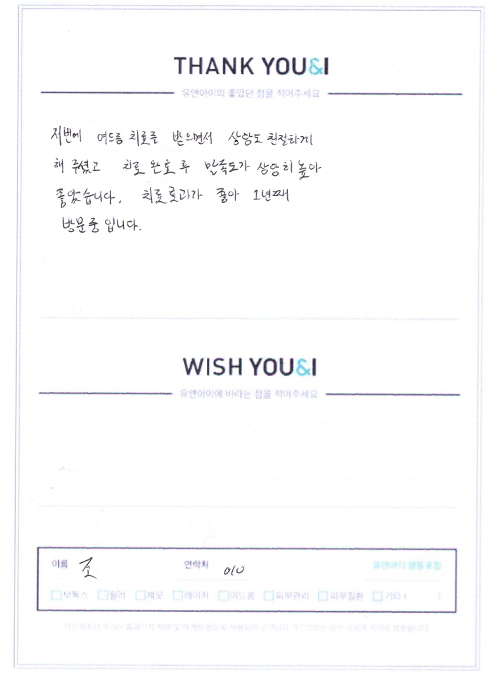 THANK YOU&I
유앤아이의 좋았던 점을 적어주세요
저번에 여드름 치료를 받으면서 상담도 친절하게
해 주셨고 치료 완료 후 만족도가 상당히 높아
좋았습니다. 치료효과가 좋아 1년째
방문중 입니다.
WISH YOU&I
유앤아이에 바라는 점을 적어주세요
이름 조 연락처 010 유앤아이
보톡스 필러 제모 레이저 여드름 피부관리 피부질환 기타 ( )